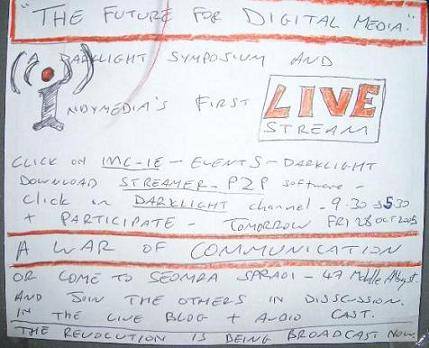 "THE FUTURE FOR DIGITAL MEDIA."
DARKLIGHT SYMPOSIUM AND
INDYMEDIA'S FIRST
LIVE
STREAM
CLICK ON IMC-IE - EVENTS - DARKLIGHT
DOWNLOAD STREAMER - P2P software -
click on DARKLIGHT channel - 9.30 - 5.30
+ PARTICIPATE - TOMORROW FRI 28 OCT 2005
A WAR OF COMMUNICATION
OR COME TO SEOMRA SPRAOI - 47 Middle Abbey St.
AND JOIN THE OTHERS IN DISSCUSSION.
IN THE LIVE BLOG + AUDIO CAST.
THE REVOLUTION IS BEING BROADCAST NOW.